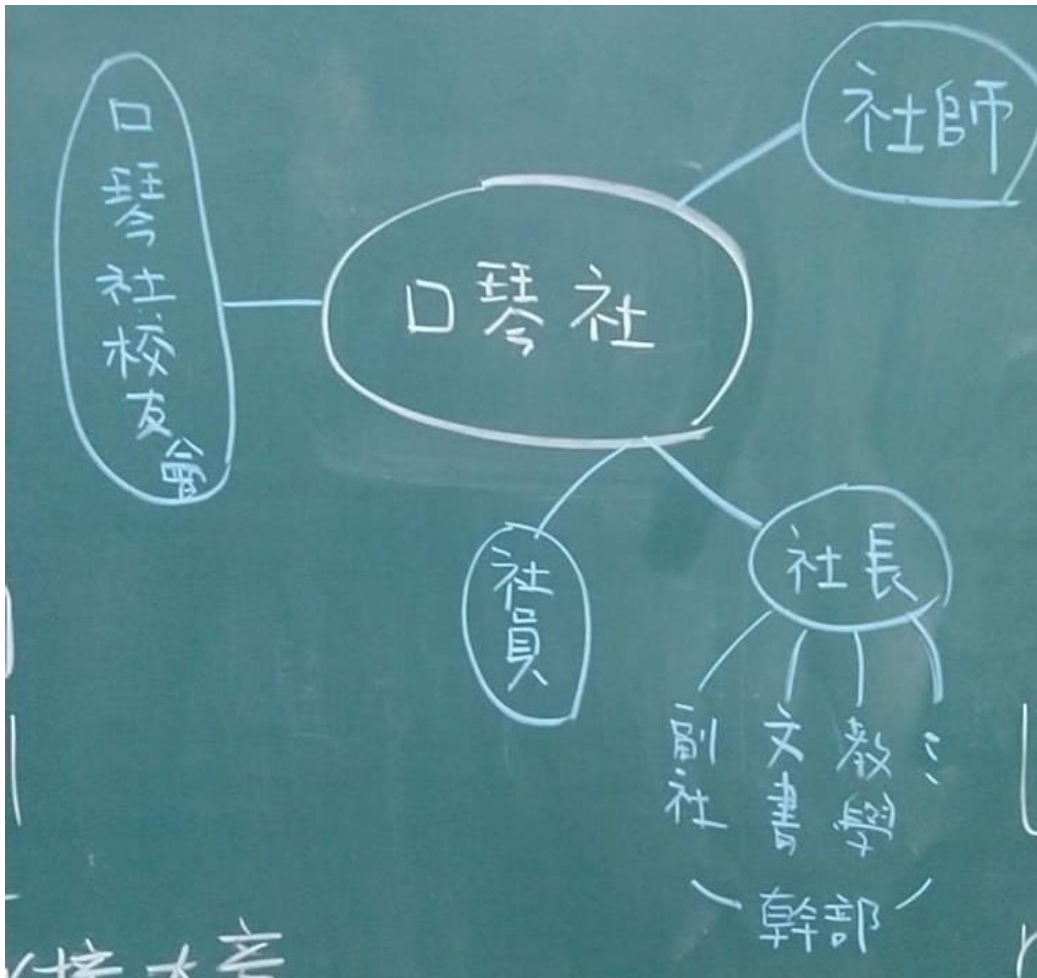 社師
口琴社校友會
口琴社
社員
社長
副社
文書
教學
幹部